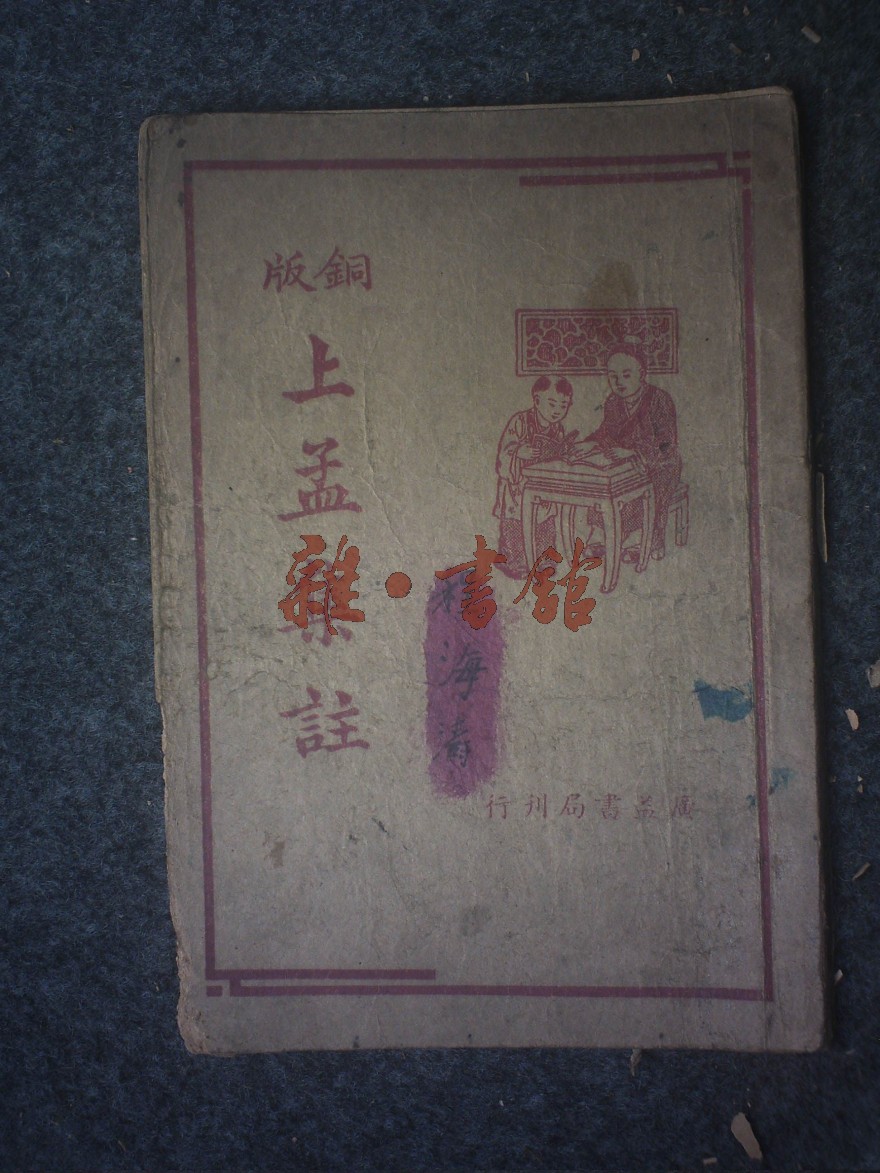 銅版
上孟集註
海清
廣益書局刊行
雜·書館